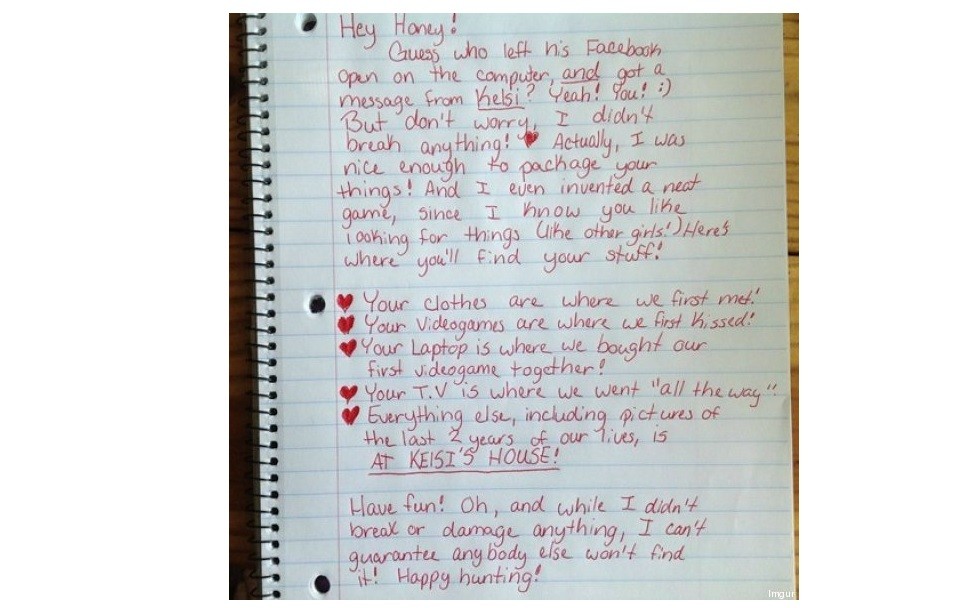 Hey Honey!
Guess who left his Facebook
open on the computer, and got a
message from Kelsi? Yeah! You! :)
But don't worry, I didn't
break anything! ♥ Actually, I was
nice enough to package your
things! And I even invented a neat
game, since I know you like
looking for things (like other girls!) Here's
where you'll find your stuff!
♥ Your clothes are where we first met!
♥ Your Videogames are where we first kissed!
♥ Your Laptop is where we bought our
first videogame together!
♥ Your T.V is where we went "all the way".
♥ Everything else, including pictures of
the last 2 years of our lives, is
AT KELSI'S HOUSE!
Have fun! Oh, and while I didn't
break or damage anything, I can't
guarantee anybody else won't find
it! Happy hunting!
Imgur